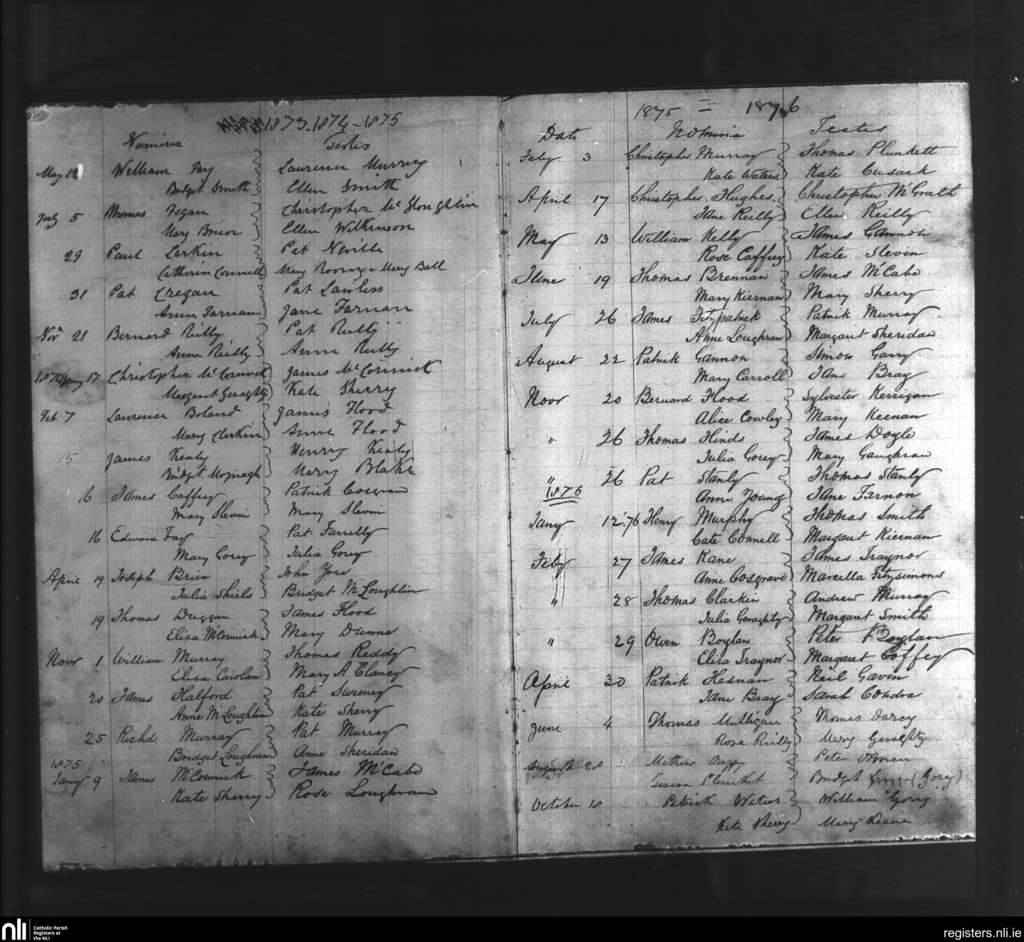 1873-1874-1875
Nomina Testes
May 12 William Fay Lawrence Murrey
Bridget Smith Ellen Smith
July 5 Thomas Fegan Christopher McGloughlin
Mary Brien Ellen Wilkinson
29 Paul Larkin Pat Neville
Catherin Connell Mary Rooney + Mary Ball
31 Pat Cregan Pat Lawless
Anna Farnan Jane Farnan
Novr 21 Bernard Reilly Pat Reilly
Anne Reilly Anne Reilly
1874 Jany 17 Christopher McCormick James McCormick
Margaret Geraghty Kate Sherry
Feb 7 Laurence Boland James Flood
Mary Clerkin Anne Flood
15 James Kealy Henry Kealy
Bridget Mary Blake
16 James Caffrey Patrick Cosgrave
Mary Slevin Mary Slevin
16 Edward Fay Pat Farrelly
Mary Gorey Julia Gorey
April 19 Joseph Brien John
Julia Shiels Bridget McLoughlin
19 Thomas Duggan James Flood
Eliza McCormick Mary Dunne
Novr 1 William Murray Thomas Reddy
Eliza Carolan Mary A Clancy
20 James Halford Pat Sweeney
Anne McLoughlin Kate Sherry
25 Richd. Murray Pat Murray
Bridget Loughran Anne Sheridan
1875
Jany 9 James McCormick James McCabe
Kate Sherry Rose Loughran
1875 = 1876
Date Nomina Testes
Feby 3 Christopher Murray Thomas Plunkett
Kate Waters Kate Cusack
April 17 Christopher Hughes Christopher McGrath
Jane Reilly Ellen Reilly
May 13 William Kelly James Gannon
Rose Caffrey Kate Slevin
June 19 Thomas Brennan James McCabe
Mary Kiernan Mary Sherry
July 26 James Fitzpatrick Patrick Murray
Anne Loughran Margaret Sheridan
August 22 Patrick Gannon Simon Garry
Mary Carroll Jane Bray
Novr 20 Bernard Flood Sylvester Kerrigan
Alice Cowley Mary Keenan
" 26 Thomas Hinds James Doyle
Julia Gorey Mary Gaughran
" 26 Pat Stanly Thomas Stanly
1876 Anne Young Jane Farnon
Jany 12 '76 Henry Murphy Thomas Smith
Cate Connell Margaret Kieenan
Feby 27 James Kane James Traynor
Anne Cosgrave Marcella Fitzsimons
" 28 Thomas Clarkin Andrew Murray
Julia Geraghty Margaret Smith
" 29 Owen Boylan Peter Boylan
Eliza Traynor Margaret Coffey
April 30 Patrick Heenan Neil Gavin
Jane Bray Sarah Condra
June 4 Thomas Mulligan Thomas Darcy
Rose Reilly Mary Geraghty
August 28 Peter O'Brien
Plunket Bridget (Gory)
October 18 Patrick Waters William Gory
Kate Sherry Mary Keane
nli Catholic Parish
Registers at
the NLI
registers.nli.ie